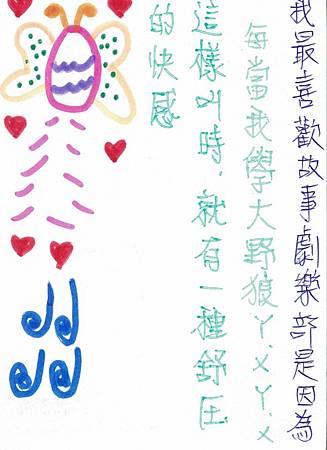 我最喜歡故事劇樂部是因為
每當我學大野狼ㄚ.ㄨ.ㄚ.ㄨ
這樣叫時,就有一種舒压
的快感